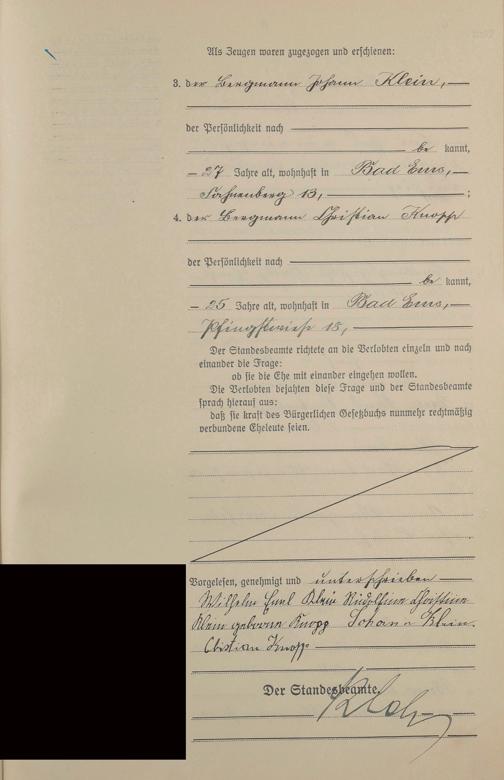 Als Zeugen waren zugezogen und erschienen:
3. der Bergmann Johann Klein,
der Persönlichkeit nach
be kannt,
27 Jahre alt, wohnhaft in Bad Ems,
13, ;
4. der Bergmann Christian Knopp
der Persönlichkeit nach
be kannt,
25 Jahre alt, wohnhaft in Bad Ems,
Pfingstwiese 18,
Der Standesbeamte richtete an die Verlobten einzeln und nach
einander die Frage:
ob sie die Ehe mit einander eingehen wollen.
Die Verlobten bejahten diese Frage und der Standesbeamte
sprach hierauf aus:
daß sie kraft des Bürgerlichen Gesetzbuchs nunmehr rechtmäßig
verbundene Eheleute seien.
Vorgelesen, genehmigt und unterschrieben
Wilhelm Emil Klein Rudolfine Christine
Klein geborene Knopp Johann Klein.
Christian Knopp
Der Standesbeamte.